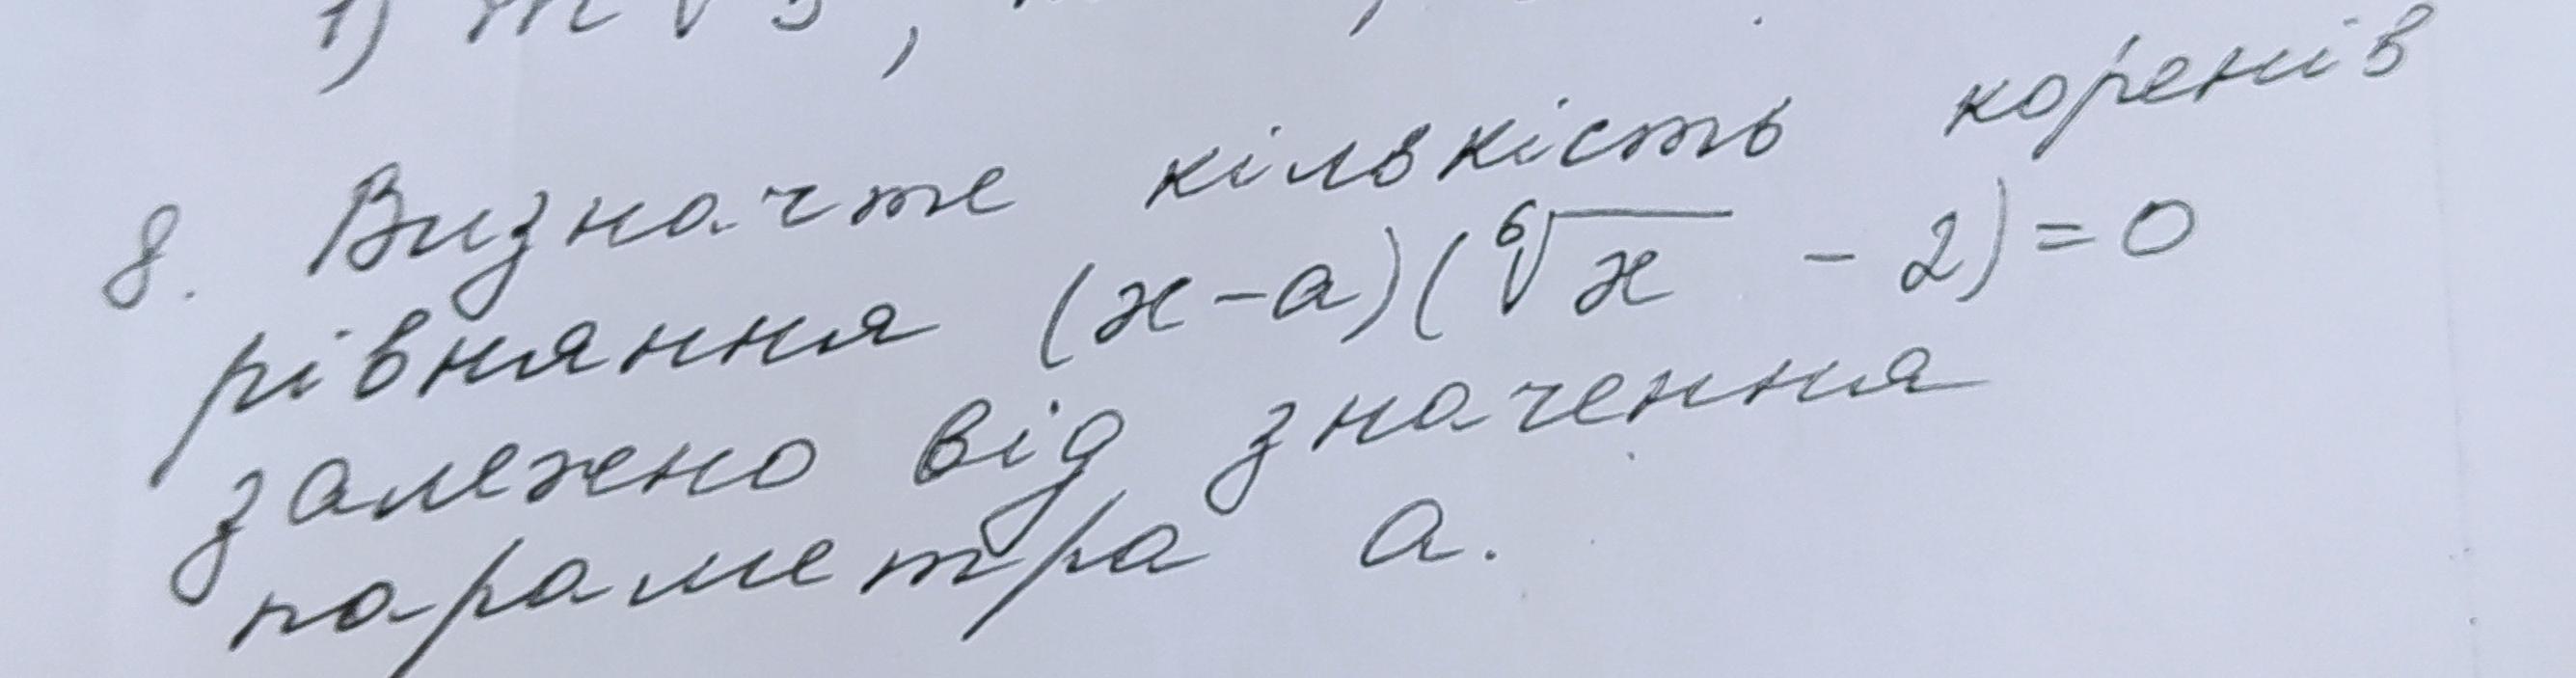 1) m √3,
8. Визначте кількість коренів
рівняння (x-a)(⁶√x - 2)=0
залежно від значення
параметра a.